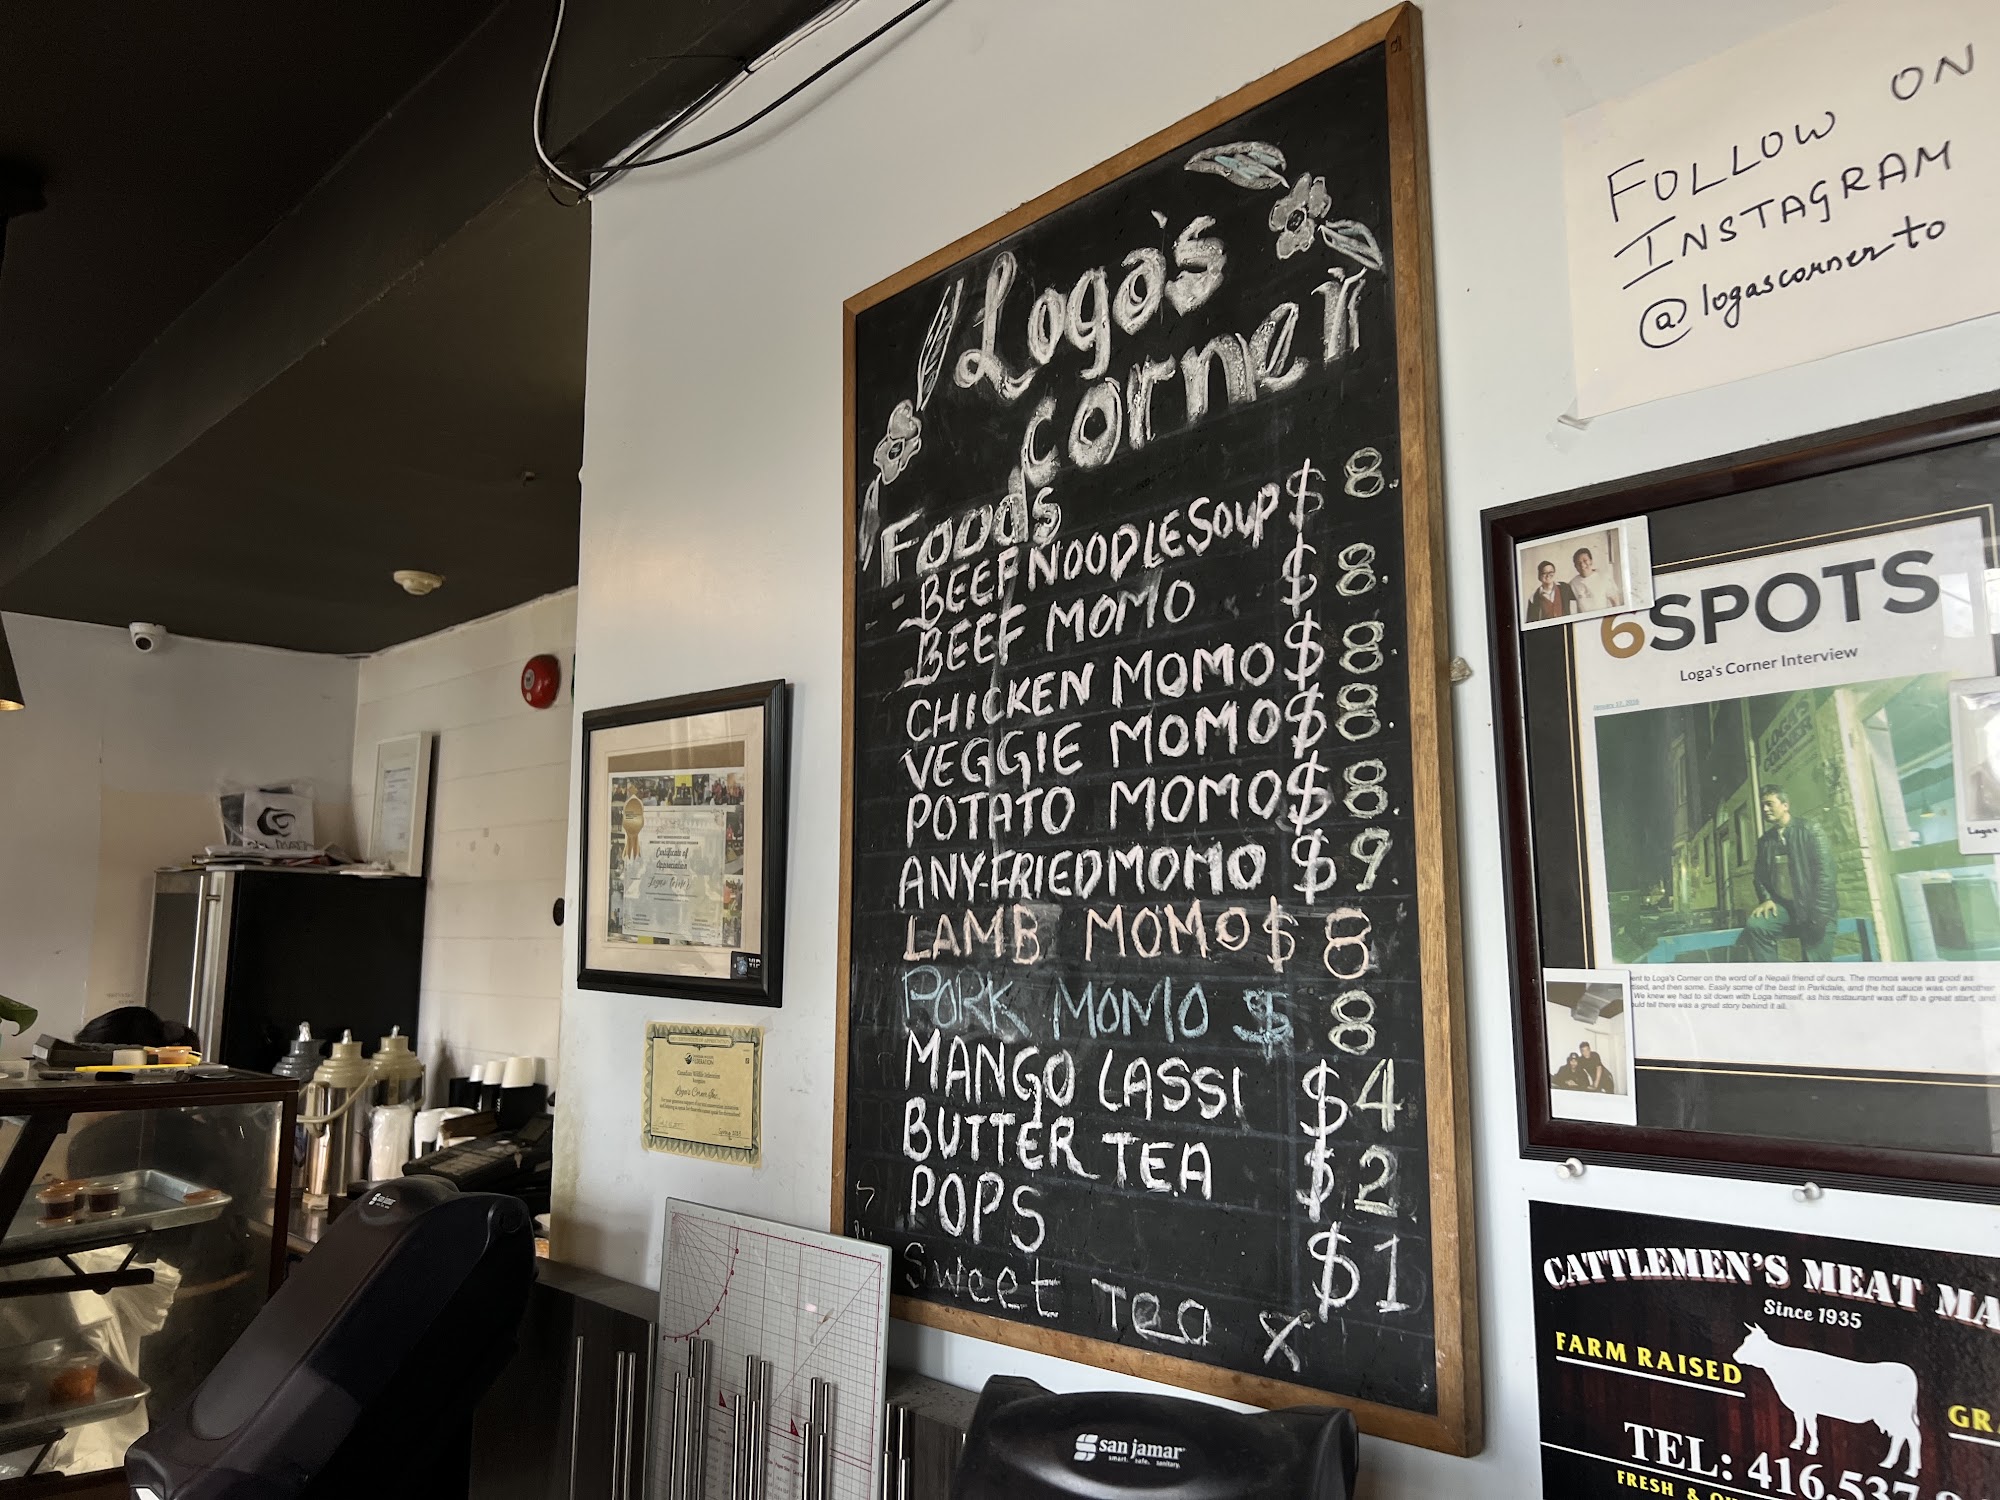 Loga's
corner
Foods
- BEEF NOODLE SOUP $ 8.
BEEF MOMO $ 8.
CHICKEN MOMO $ 8.
VEGGIE MOMO $ 8.
POTATO MOMO $ 8.
ANY-FRIED MOMO $ 9.
LAMB MOMO $ 8
PORK MOMO $ 8
MANGO LASSI $ 4
BUTTER TEA $ 2
POPS $ 1
Sweet Tea
FOLLOW ON
INSTAGRAM
@logascornerto
6SPOTS
Loga's Corner Interview
January 12, 2018
LOGA'S
CORNER
ent to Loga's Corner on the word of a Nepali friend of ours. The momos were as good as
ised, and then some. Easily some of the best in Parkdale, and the hot sauce was on another
We knew we had to sit down with Loga himself, as his restaurant was off to a great start, and
uld tell there was a great story behind it all.
Loga's
CATTLEMEN'S MEAT MA
Since 1935
FARM RAISED
GRA
TEL: 416.537
FRESH &
san jamar
smart. safe. sanitary.
san jamar
Certificate of
Appreciation
Loga's Corner